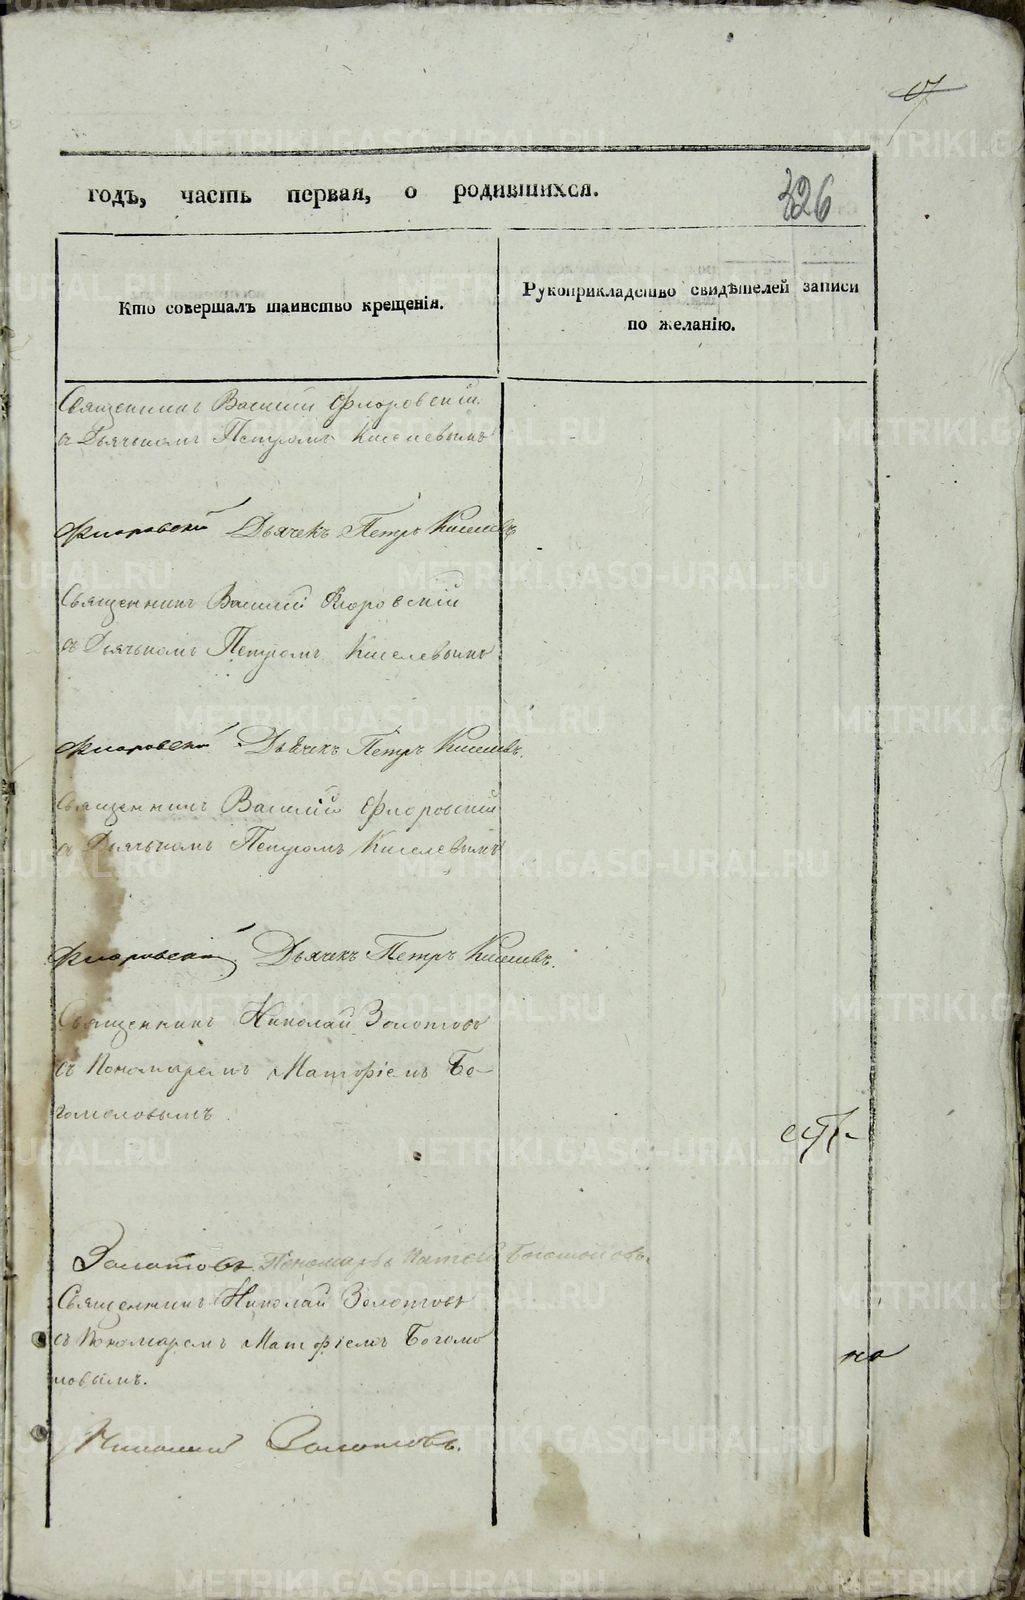 годъ, часть первая, о родившихся.
326
Кто совершалъ таинство крещенія.
Рукоприкладство свидѣтелей записи
по желанію.
Священникъ Василій Флоровскій
съ Дьячкомъ Петромъ Киселевымъ
Флоровскій Дьячекъ Петръ Киселевъ
Священникъ Василій Флоровскій
съ Дьячкомъ Петромъ Киселевымъ
Флоровскій Дьячекъ Петръ Киселевъ.
Священникъ Василій Флоровскій
съ Дьячкомъ Петромъ Киселевымъ
Флоровскій Дьячекъ Петръ Киселевъ.
Священникъ Николай Золотовъ
съ Пономаремъ Матфіемъ Бо-
гомоловымъ
Золотовъ Пономарь Матѳей Богомоловъ.
Священникъ Николай Золотовъ
съ Пономаремъ Матфіемъ Богомо
ловымъ.
но
Николай Золотовъ.
METRIKI.GASO-URAL.RU